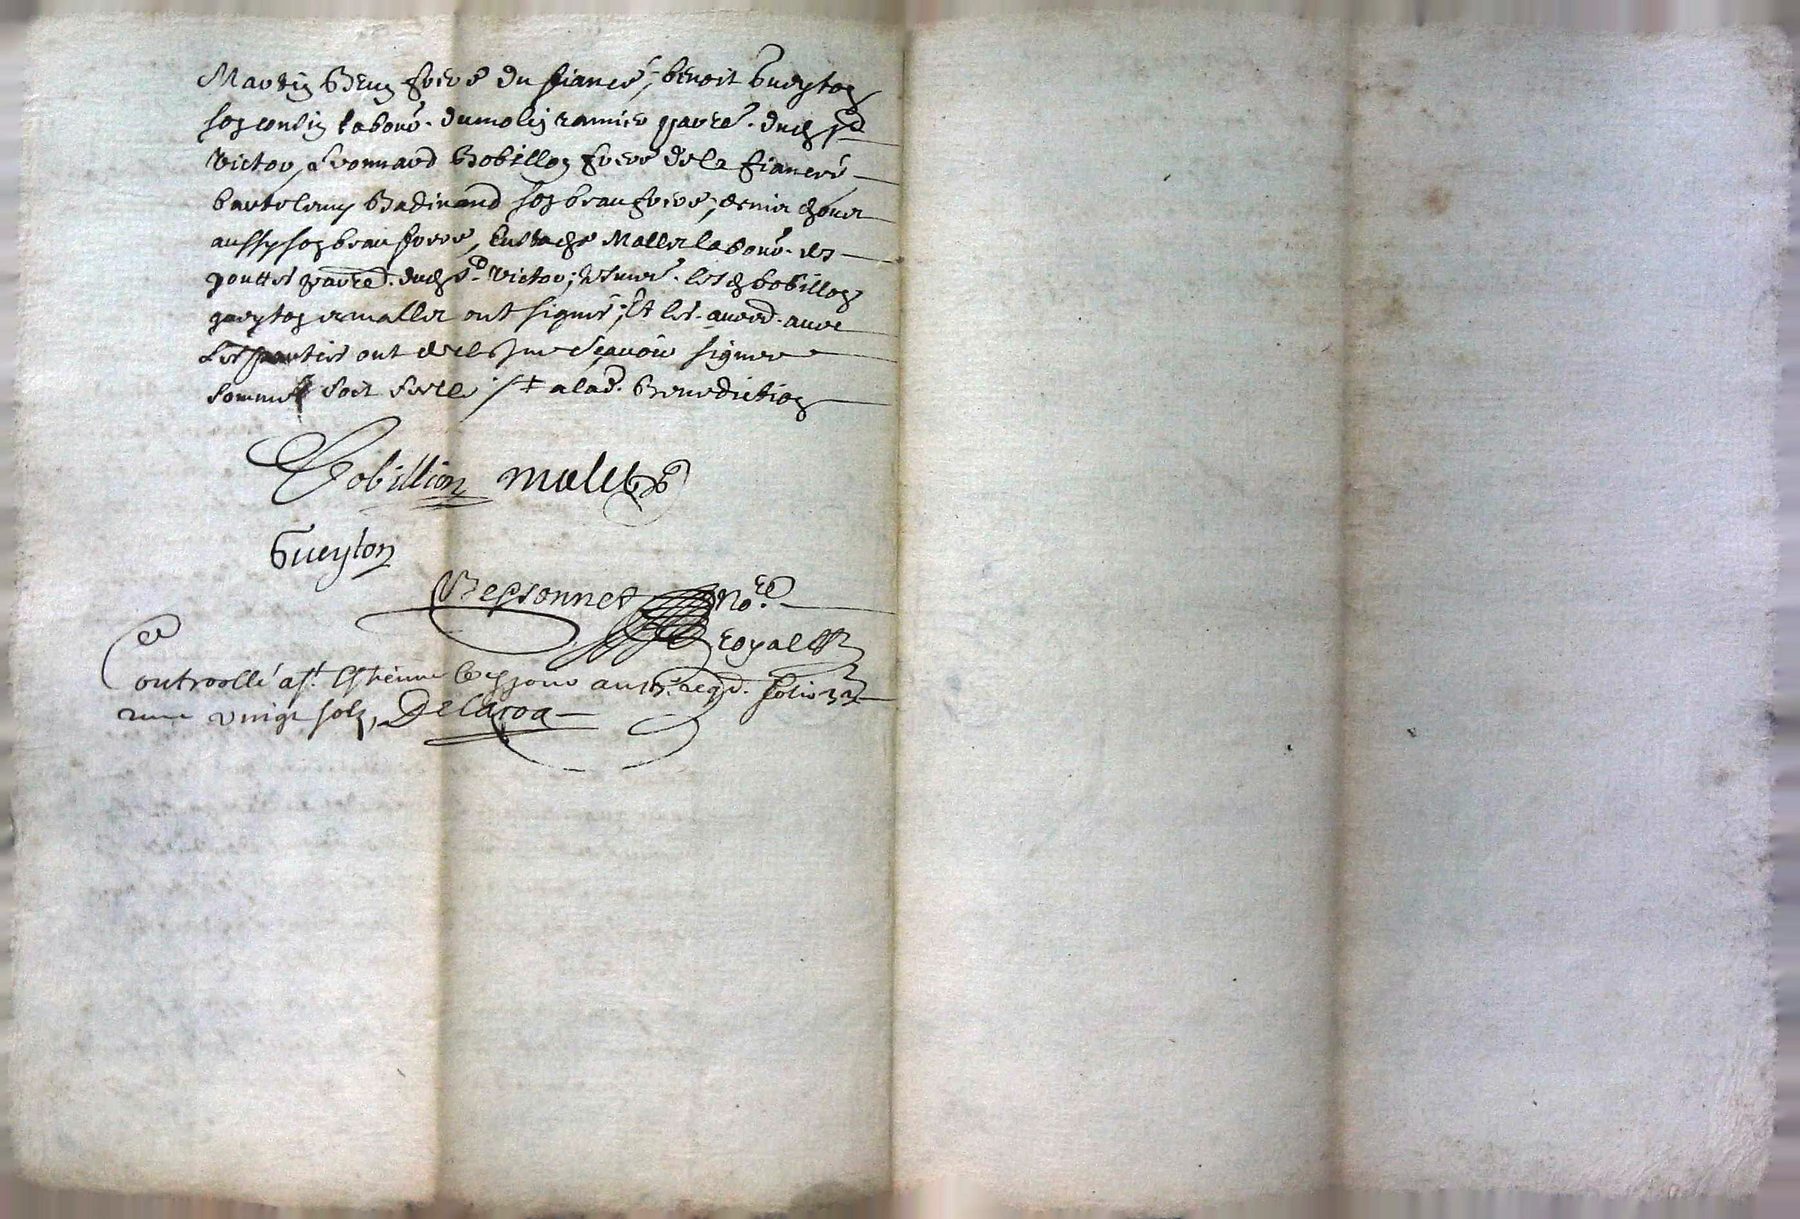 Martin Brun frere du fiancé, benoit Gueyton
son cousin labour. du molin ramier parre. dud. st
Victor, Leonnard Bobillon frere de la fiancée
bartelemy Badinand son beaufrere, denis
aussy son beaufrere, Eustache Mallet labour. des
gouttes parre. dud. st. Victor; lesd. bobillon
gueyton et mallet ont signé, Et les. autres. avec
Les parties ont declaré ne sçavoir signer
sommé soit scellé ·/ + a lad. Benediction
Bobillion malet
Gueyton
Bessonnet No.re
royal
Controollé a st. Estienne led. jour au reg. folio
recu vingt sols, Delacroa